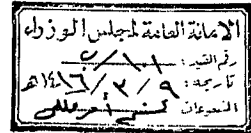 الامانة العامة لمجلس الوزراء
رقم القيد: ٢/١٠١
تاريخه: ٩/٣/١٤١٦هـ
المشفوعات: